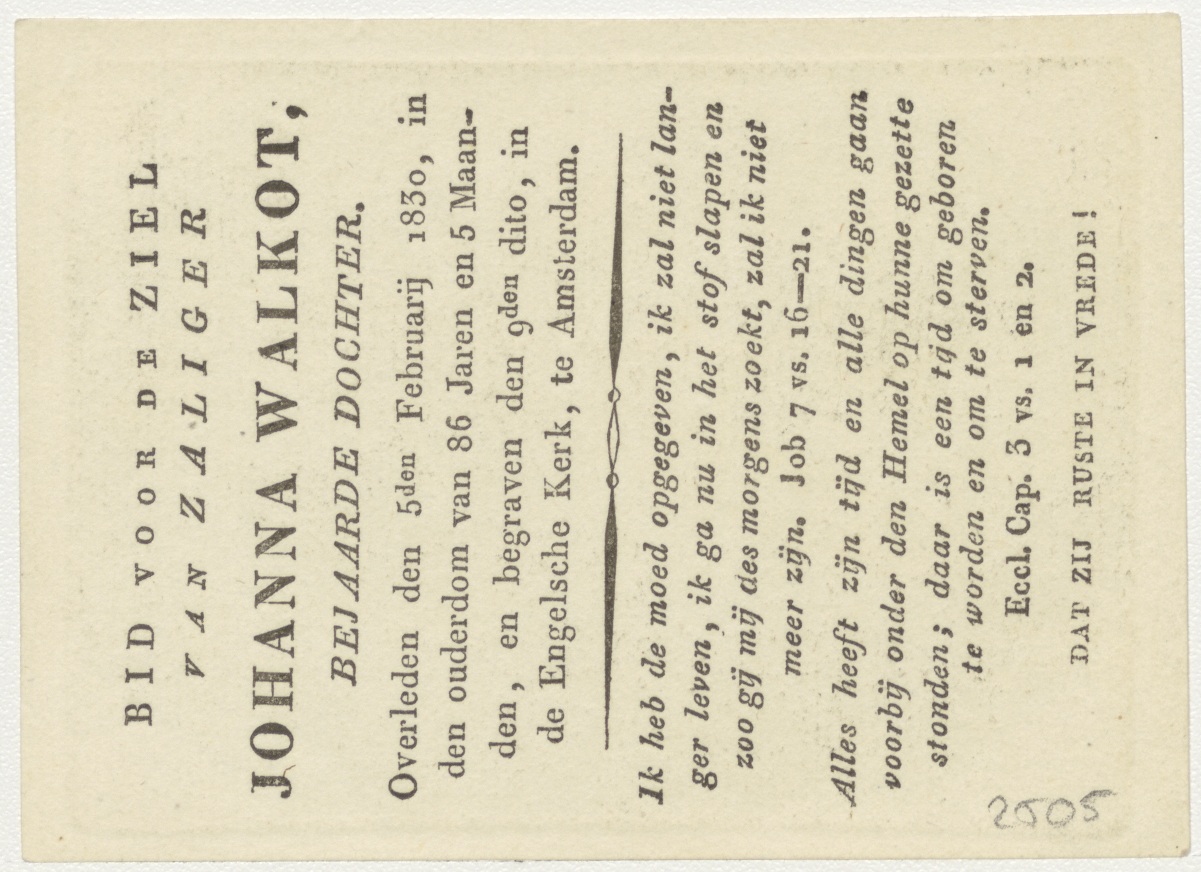 BID VOOR DE ZIEL
VAN ZALIGER
JOHANNA WALKOT,
BEJAARDE DOCHTER.
Overleden den 5den Februarij 1830, in
den ouderdom van 86 Jaren en 5 Maan-
den, en begraven den 9den dito, in
de Engelsche Kerk, te Amsterdam.
Ik heb de moed opgegeven, ik zal niet lan-
ger leven, ik ga nu in het stof slapen en
zoo gij mij des morgens zoekt, zal ik niet
meer zijn. Job 7 vs. 16—21.
Alles heeft zijn tijd en alle dingen gaan
voorbij onder den Hemel op hunne gezette
stonden; daar is een tijd om geboren
te worden en om te sterven.
Eccl. Cap. 3 vs. 1 en 2.
DAT ZIJ RUSTE IN VREDE!
2505